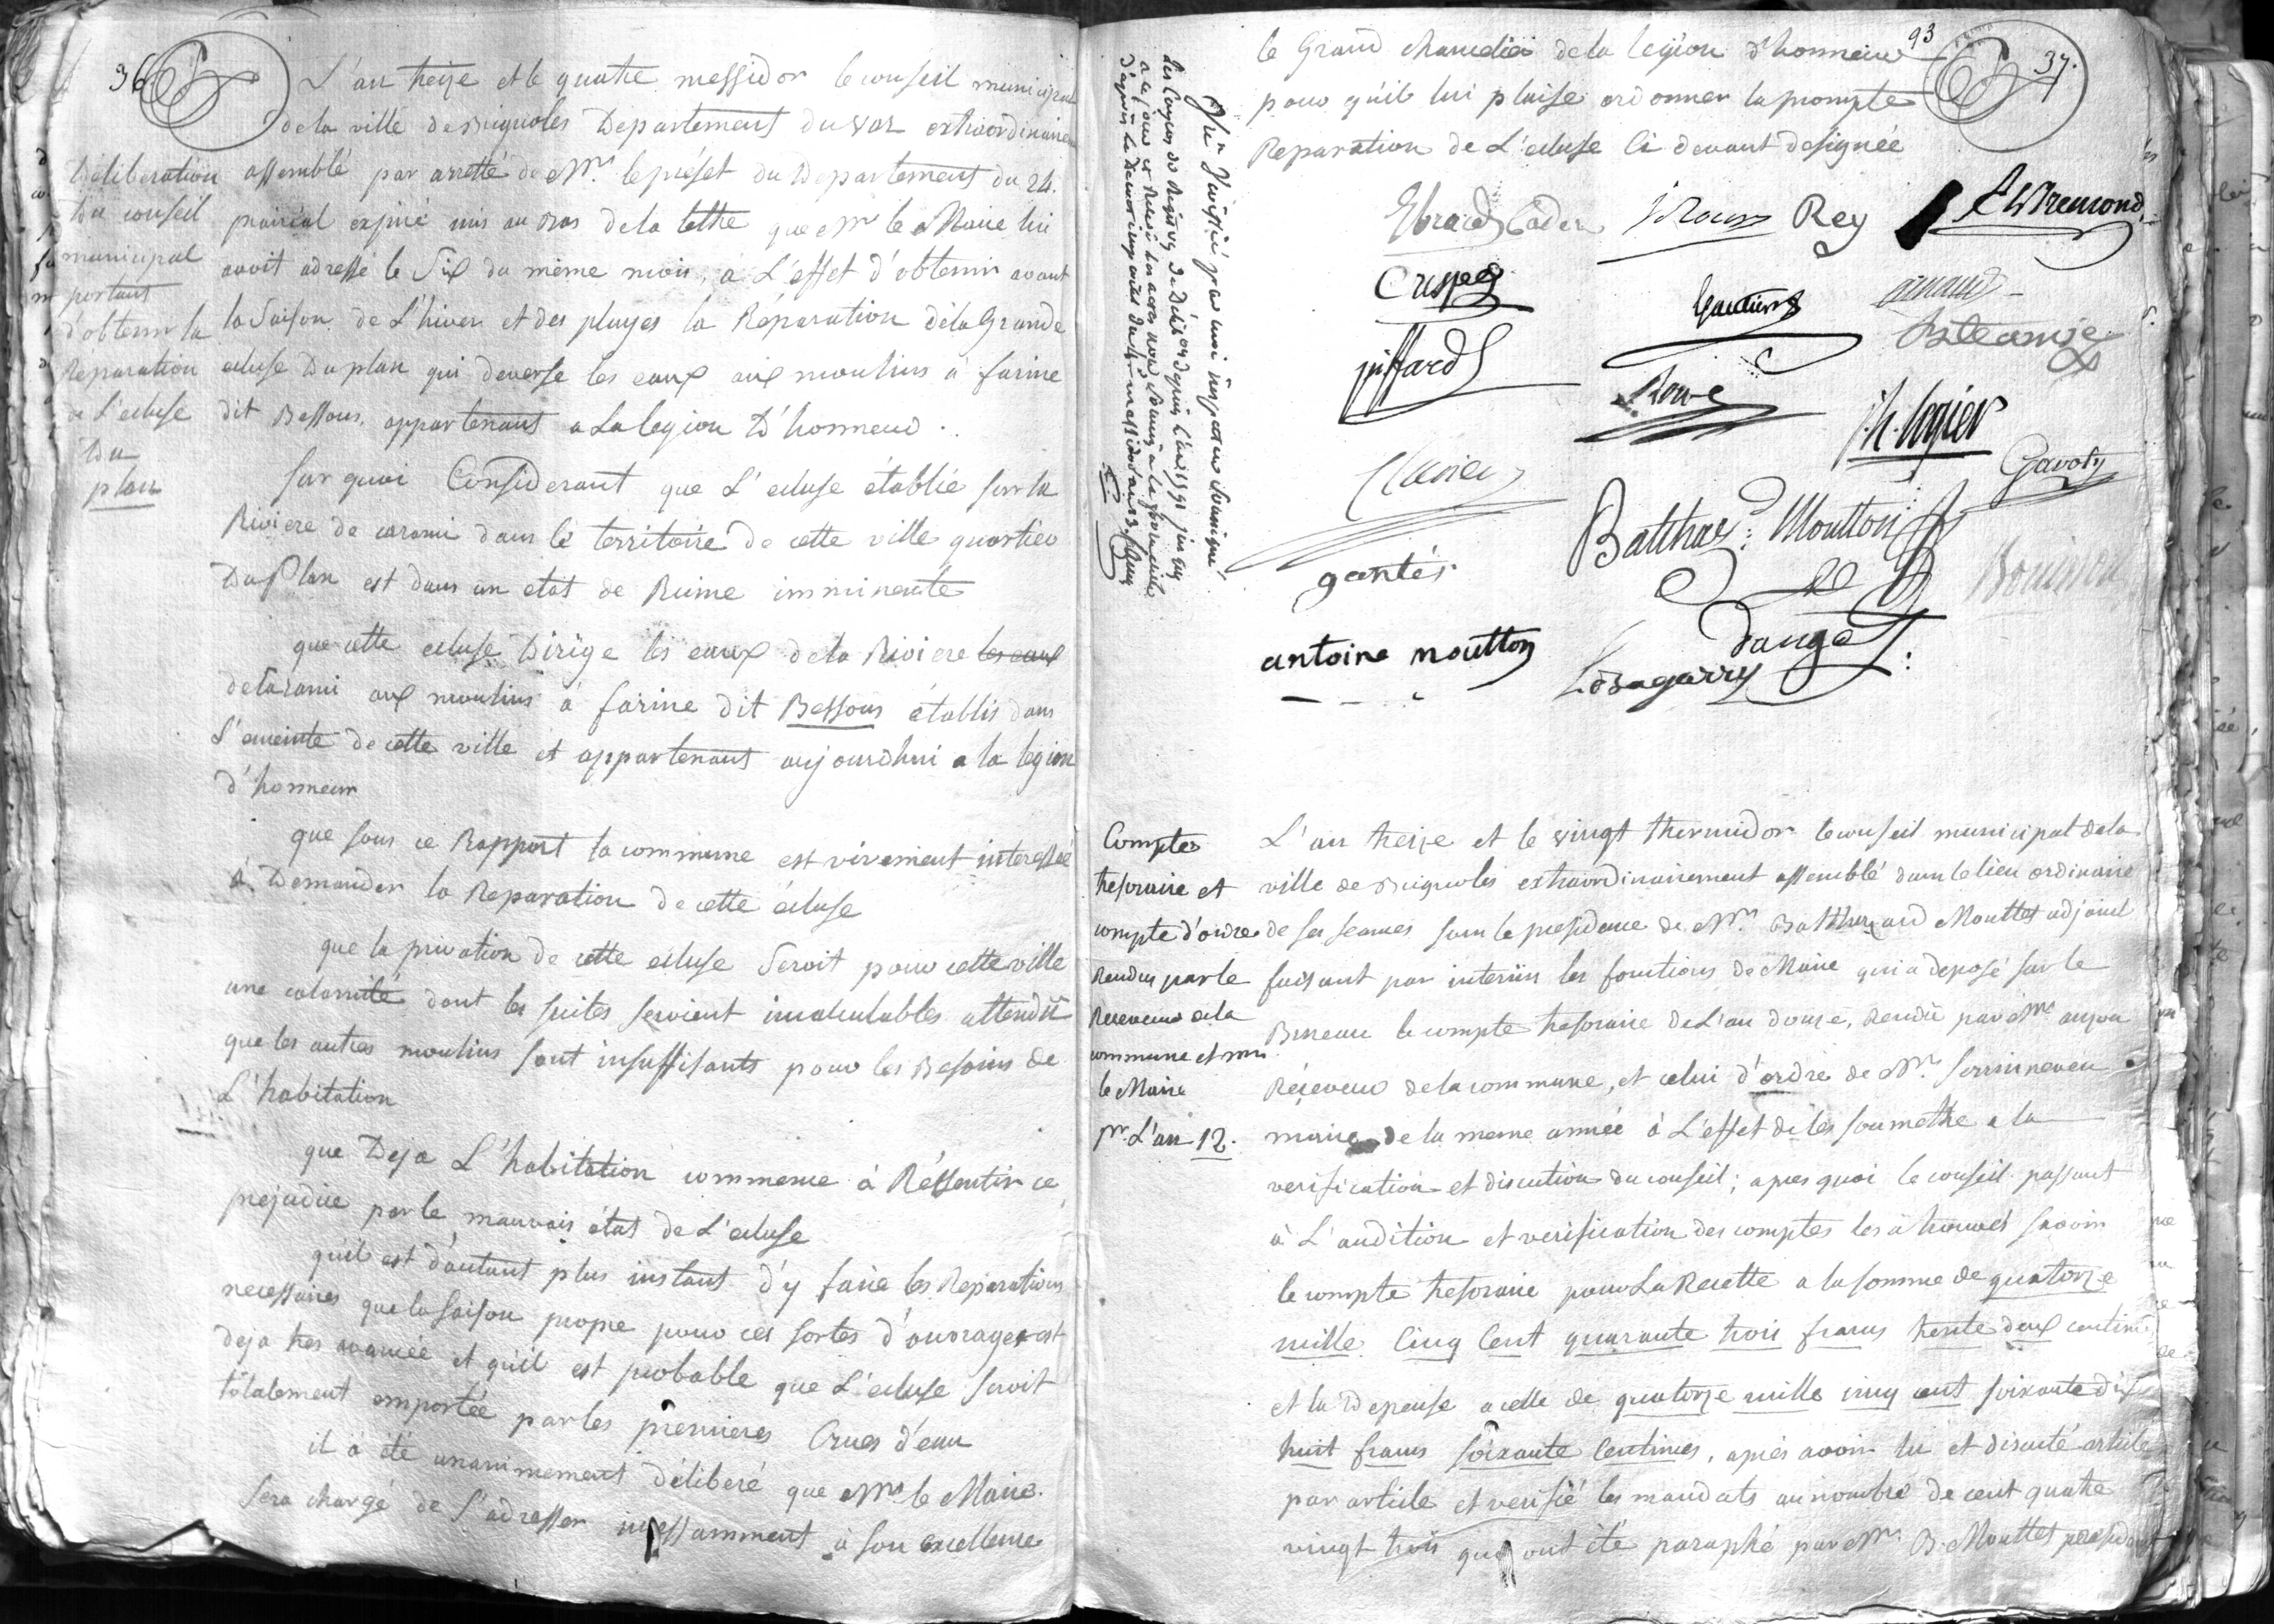 36
L'an treize et le quatre messidor le conseil municipal
de la ville de Brignoles Departement du Var extraordinairem
Déliberation
Du conseil
municipal
portant
d'obtenir la
Réparation
de L'ecluse
Du
plan
assemblé par arretté de Mr. le préfet du Departement du 24.
prairial expiré mis au bas de la lettre que Mr le Maire lui
avoit adressé le Six du même mois, a L'effet d'obtenir avant
la Saison de L'hiver et des pluyes la Réparation de la Grande
ecluse Du plan qui deverse les eaux aux moulins à farine
dit Bessons, appartenant a La legion D'honneur.
Sur quoi Considerant que L'ecluse établie sur la
Riviere de carami dans le territoire de cette ville quartier
Du Plan est dans un etat de Ruine imminente
que cette ecluse Dirige les eaux de la Riviere les eaux
de Carami aux moulins à farine dit Bessons établis dans
L'enceinte de cette ville et appartenant aujourdhui a la legion
d'honneur
que sous ce Rapport la commune est vivement interessée
à Demander la Reparation de cette écluse
que la privation de cette ecluse Seroit pour cette ville
une calamité dont les suites seroient incalculables attendû
que les autres moulins sont insuffisants pour les Besoins de
L'habitation
que Deja L'habitation commence à Réssentir ce
prejudice par le mauvais état de L'ecluse
qu'il est d'autant plus instant d'y faire les Reparations
necessaires que la saison propre pour ces sortes d'ouvrages est
deja tres avancée et qu'il est probable que L'ecluse seroit
totalement emportée par les premieres Crues d'eau
il a été unanimement déliberé que Mr le Maire
sera chargé de S'adresser incessamment à son excellence
93
37.
le Grand chancelier de la legion d'honneur
pour qu'il lui plaise ordonner la prompte
Reparation de L'ecluse Ci devant designée
Rey
Crespe
Gautier
arnaud
juffard
Roux
h. legier
Gavoty
Clavier
Balthar: Moutton
gantés
antoine moutton
dauge
Lesagarry
Comptes
tresoraire et
compte d'ordre
Rendus par le
Receveur de la
commune et mr
le Maire
pr. L'an 12.
L'an treize et le vingt thermidor le conseil municipal de la
ville de Brignoles extraordinairement assemblé dans le lieu ordinaire
de ses seances sous la presidence de Mr. Balthazard Mouttet adjoint
faisant par interim les fonctions de Maire qui a deposé sur le
Bureau le compte tresoraire de L'an douze, rendû par Mr
Réceveur de la commune, et celui d'ordre de Mr.
maire de la meme année à L'effet de les soumettre a la
verification et discution du conseil; apres quoi le conseil passant
à L'audition et verification des comptes les à trouvés savoir
le compte tresoraire pour La Recette a la somme de quatorze
mille Cinq Cent quarante trois francs trente deux centimes
et la Depense a celle de quatorze mille cinq cent soixante dix
huit francs soixante Centimes, après avoir lu et discuté article
par article et verifié les mandats au nombre de cent quatre
vingt trois qui ont été paraphé par Mr. B. Mouttet president